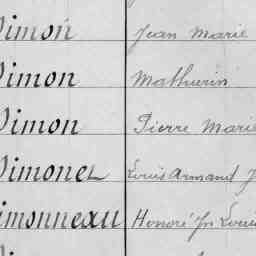 Simon Jean Marie
Simon Mathurin
Simon Pierre Marie
Simonet Louis Armand J
Simonneau Honoré Jn Louis